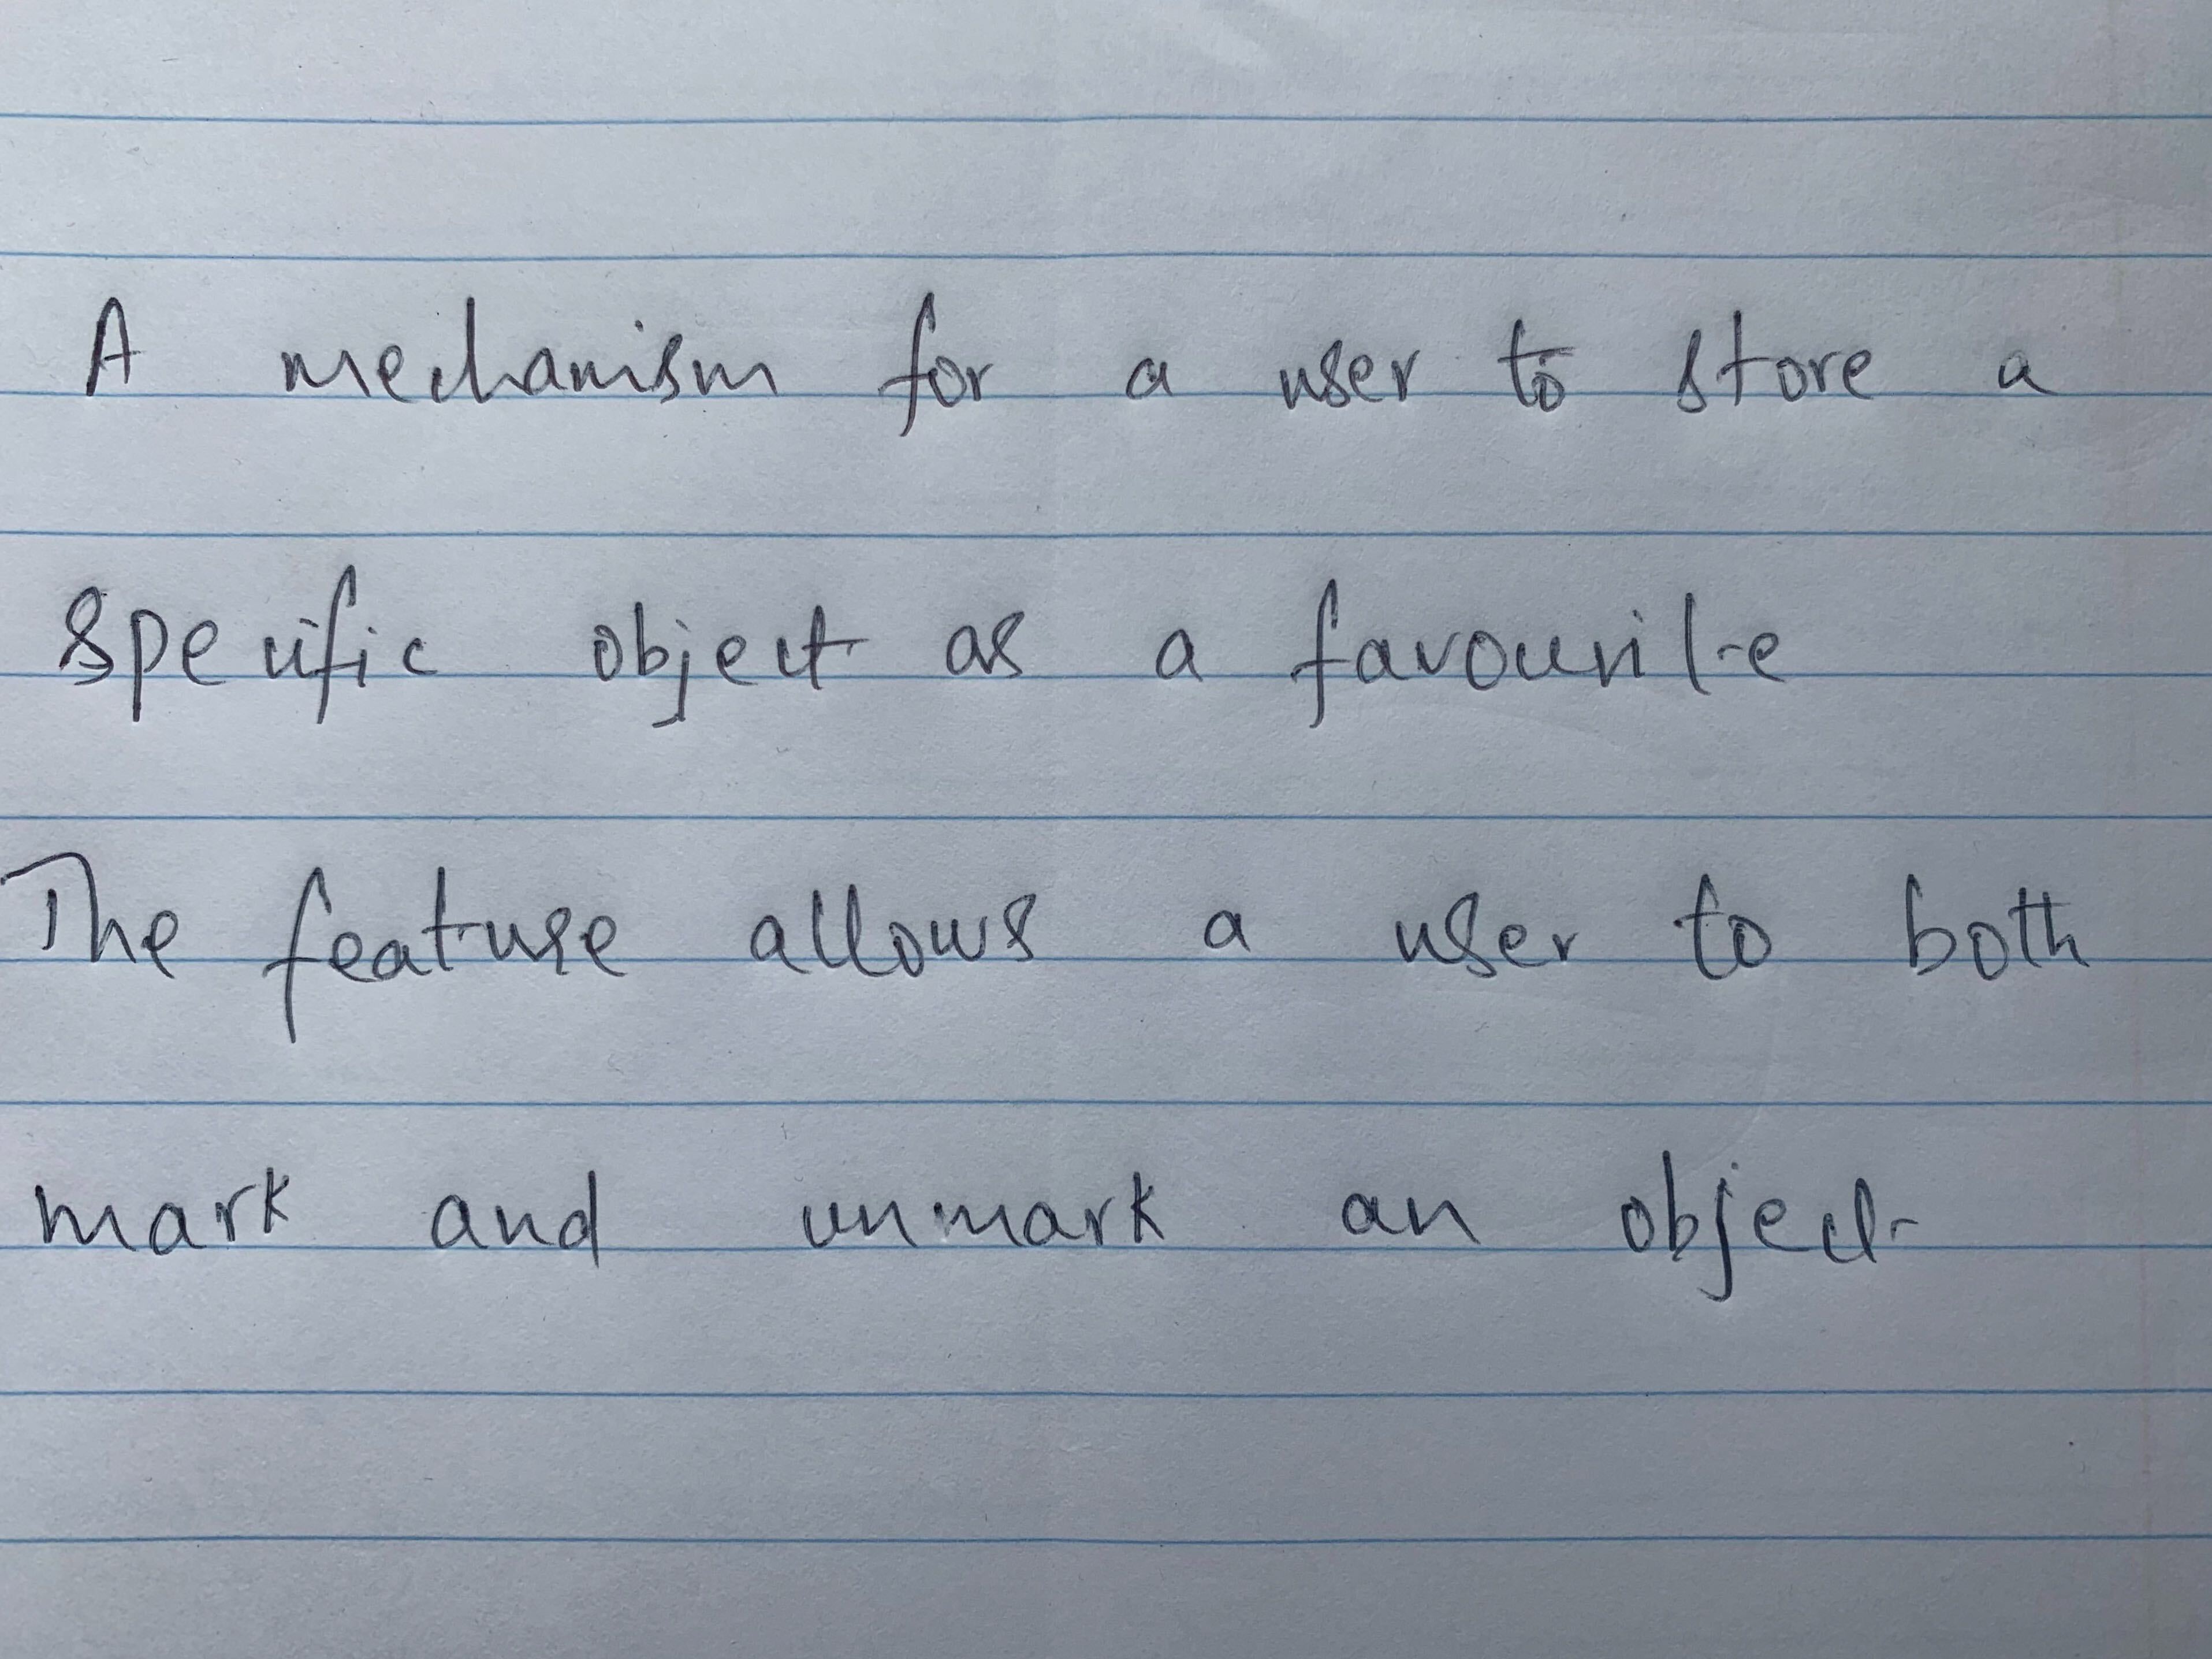 A mechanism for a user to store a
specific object as a favourite
The feature allows a user to both
mark and unmark an object